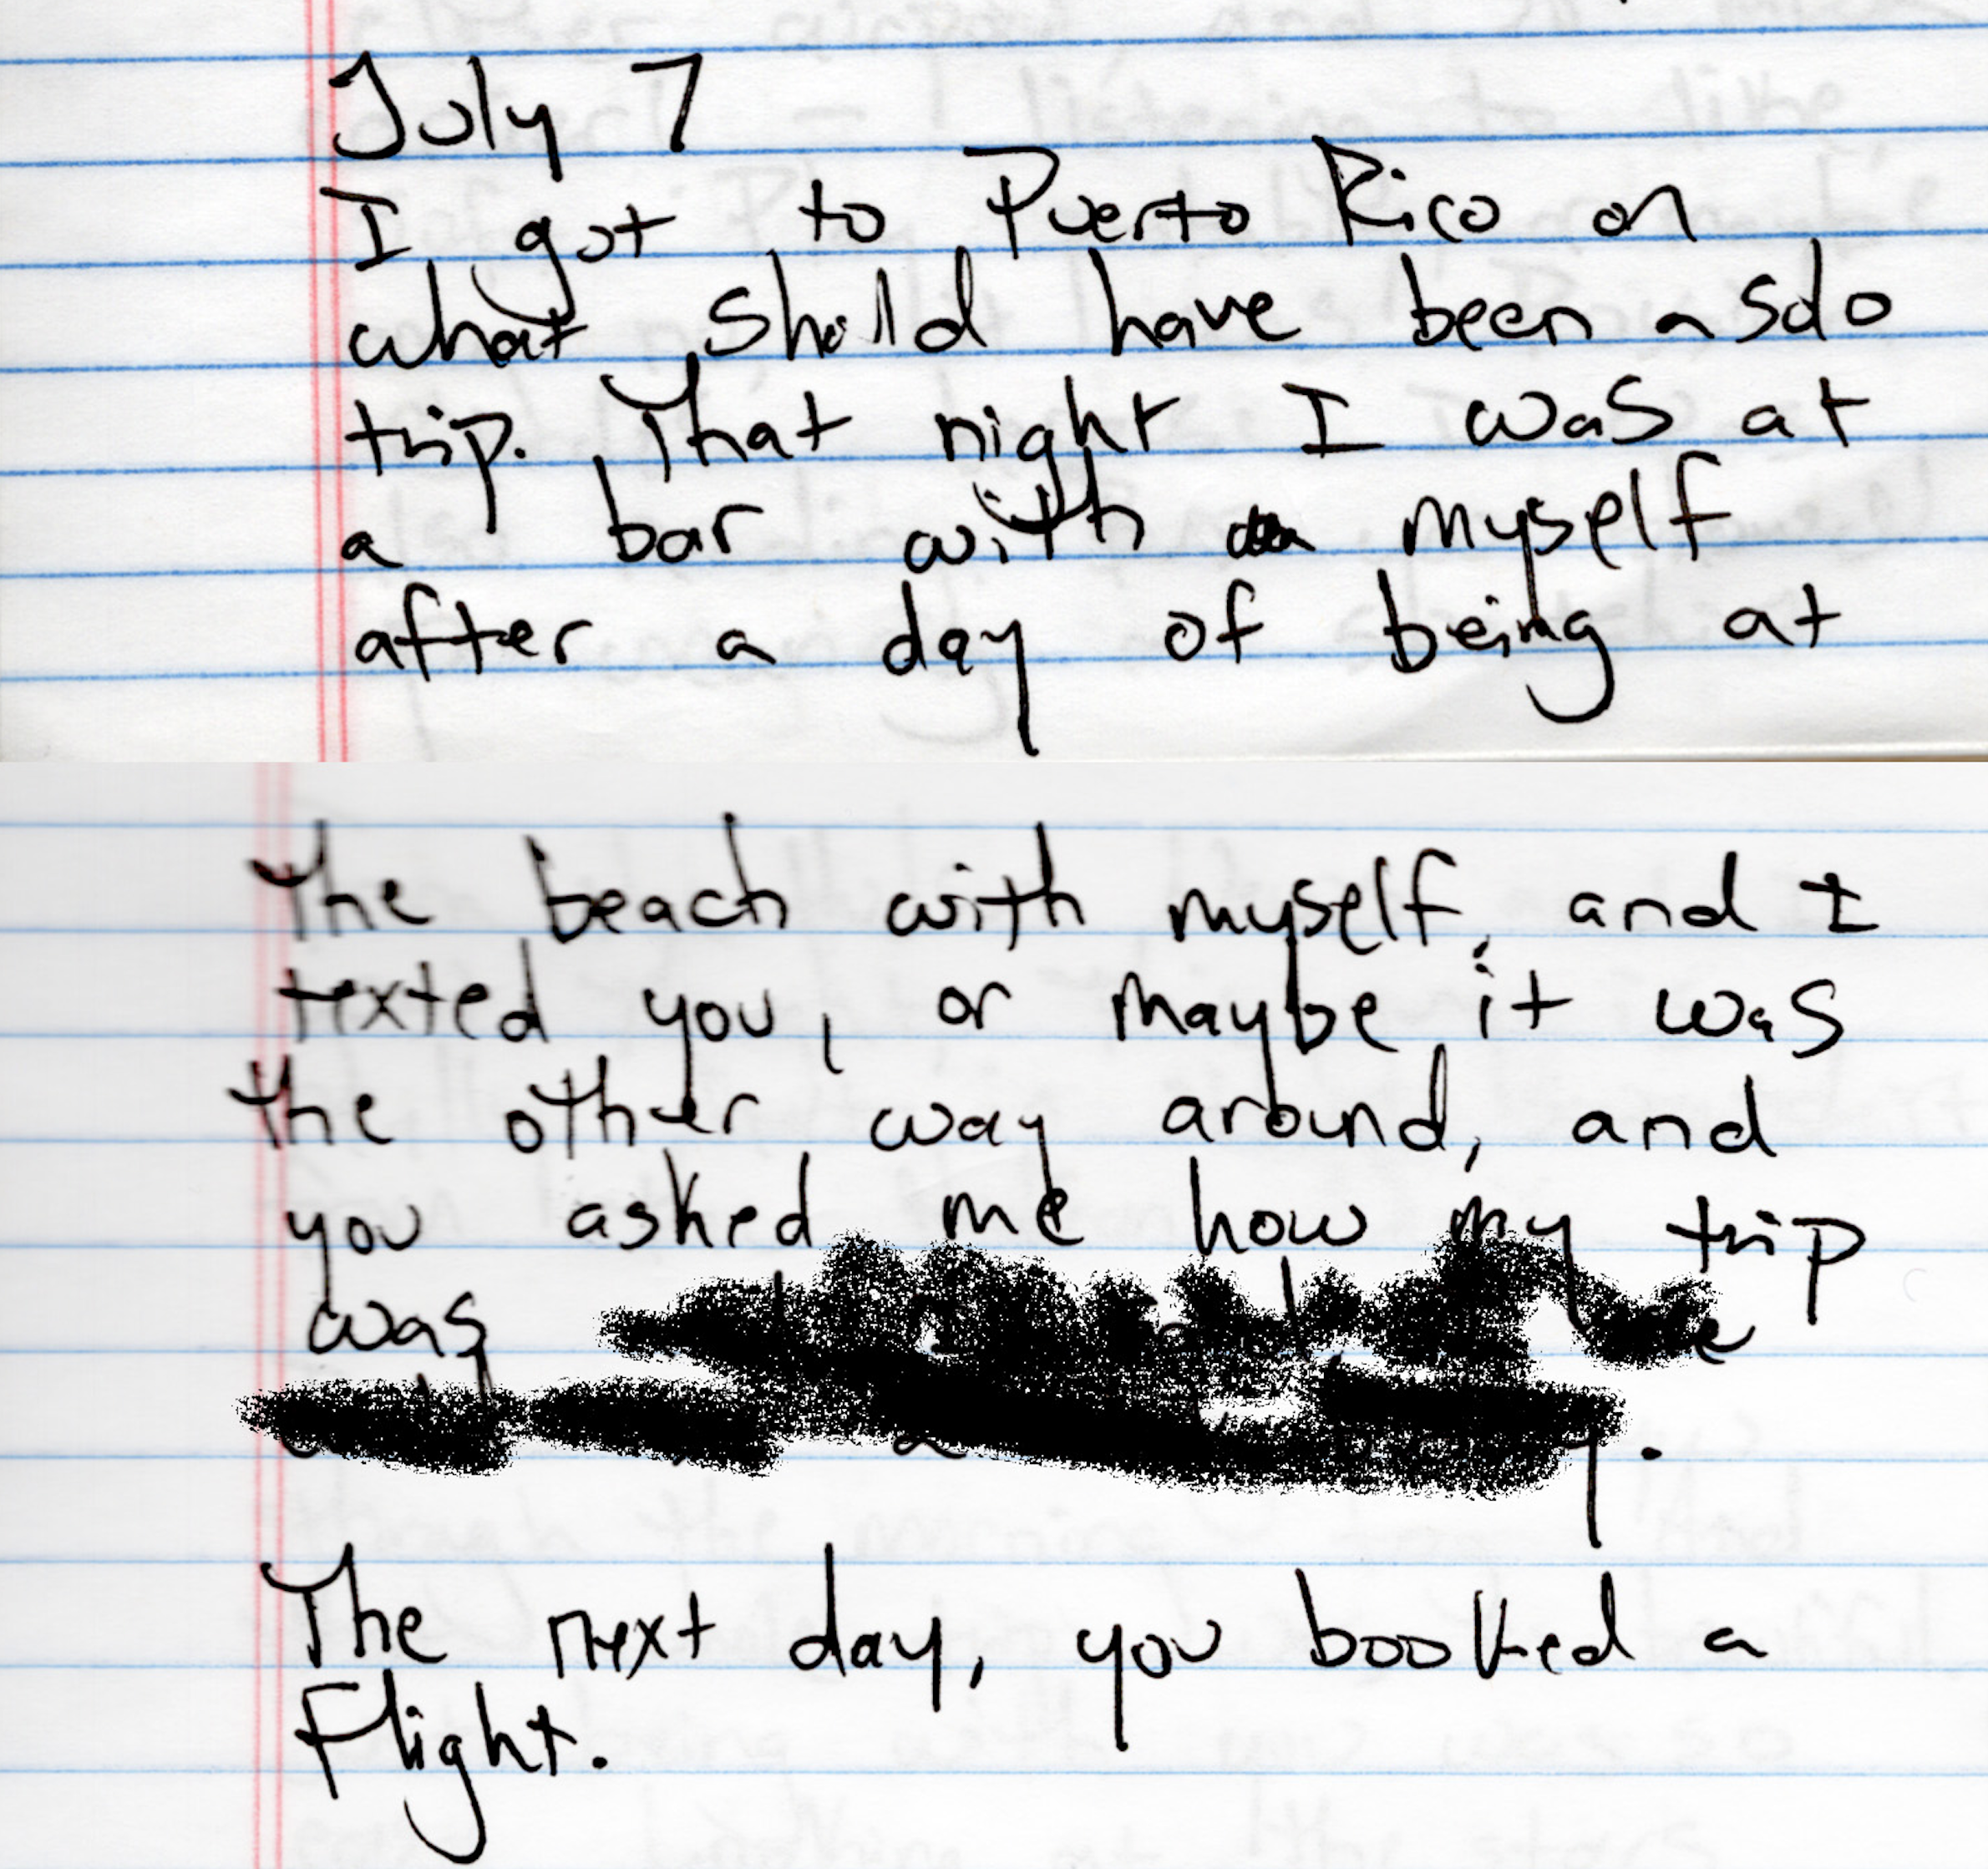 July 7
I got to Puerto Rico on
what should have been a solo
trip. That night I was at
a bar with myself
after a day of being at
the beach with myself, and I
texted you, or maybe it was
the other way around, and
you asked me how my trip
was
The next day, you booked a
flight.